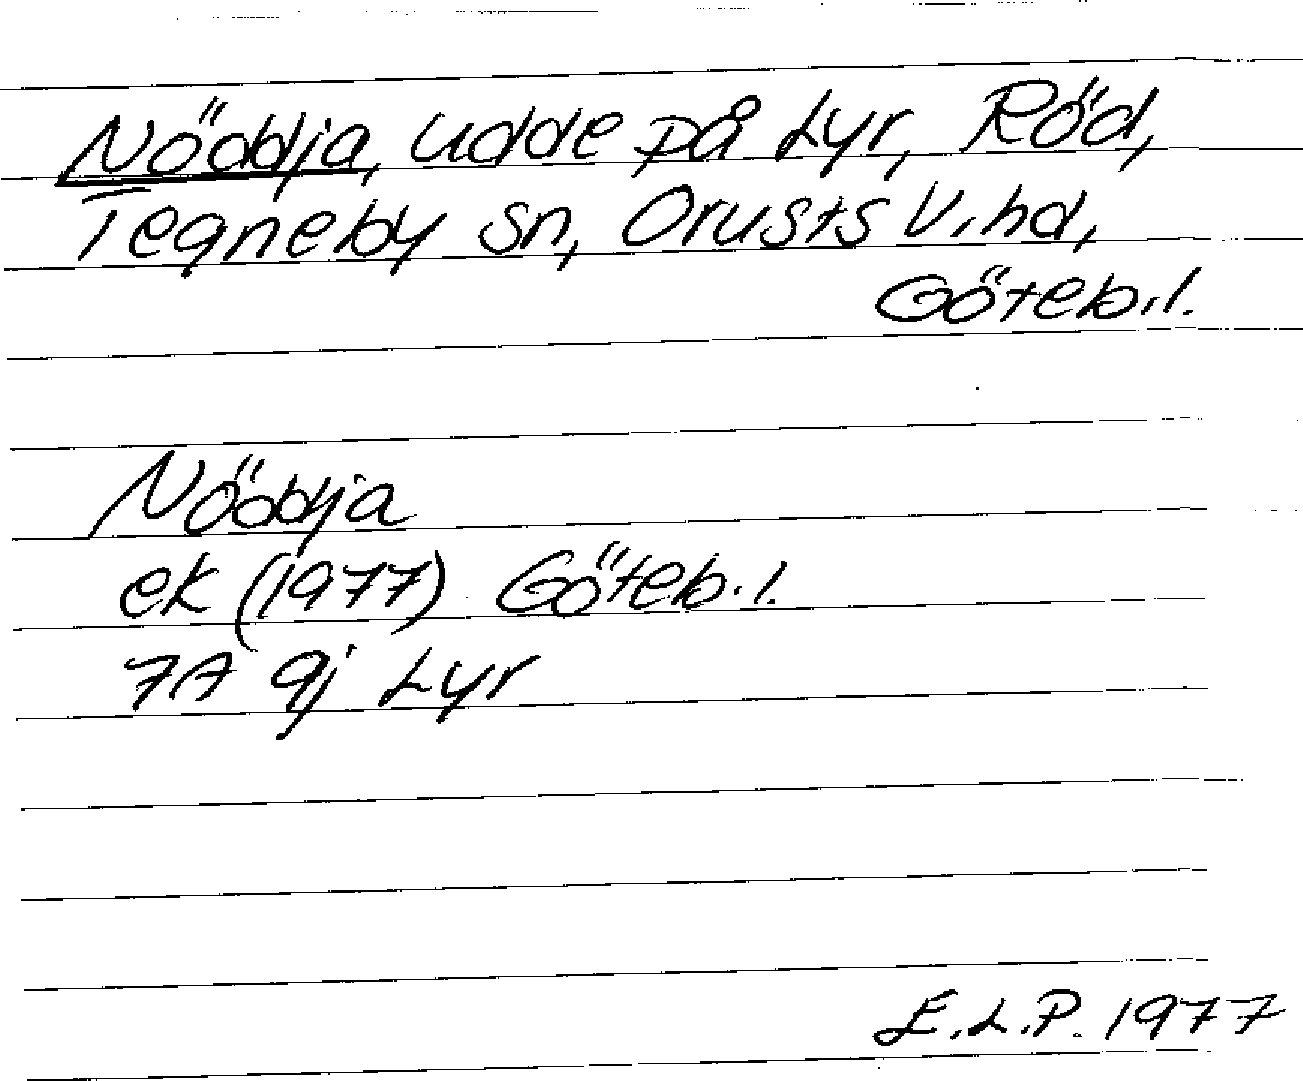 Nöddja, udde på Lyr, Röd,
Tegneby sn, Orusts V. hd,
Göteb. l.
Nöddja
ek (1977) Göteb. l.
7A 9j Lyr
E.L.P. 1977